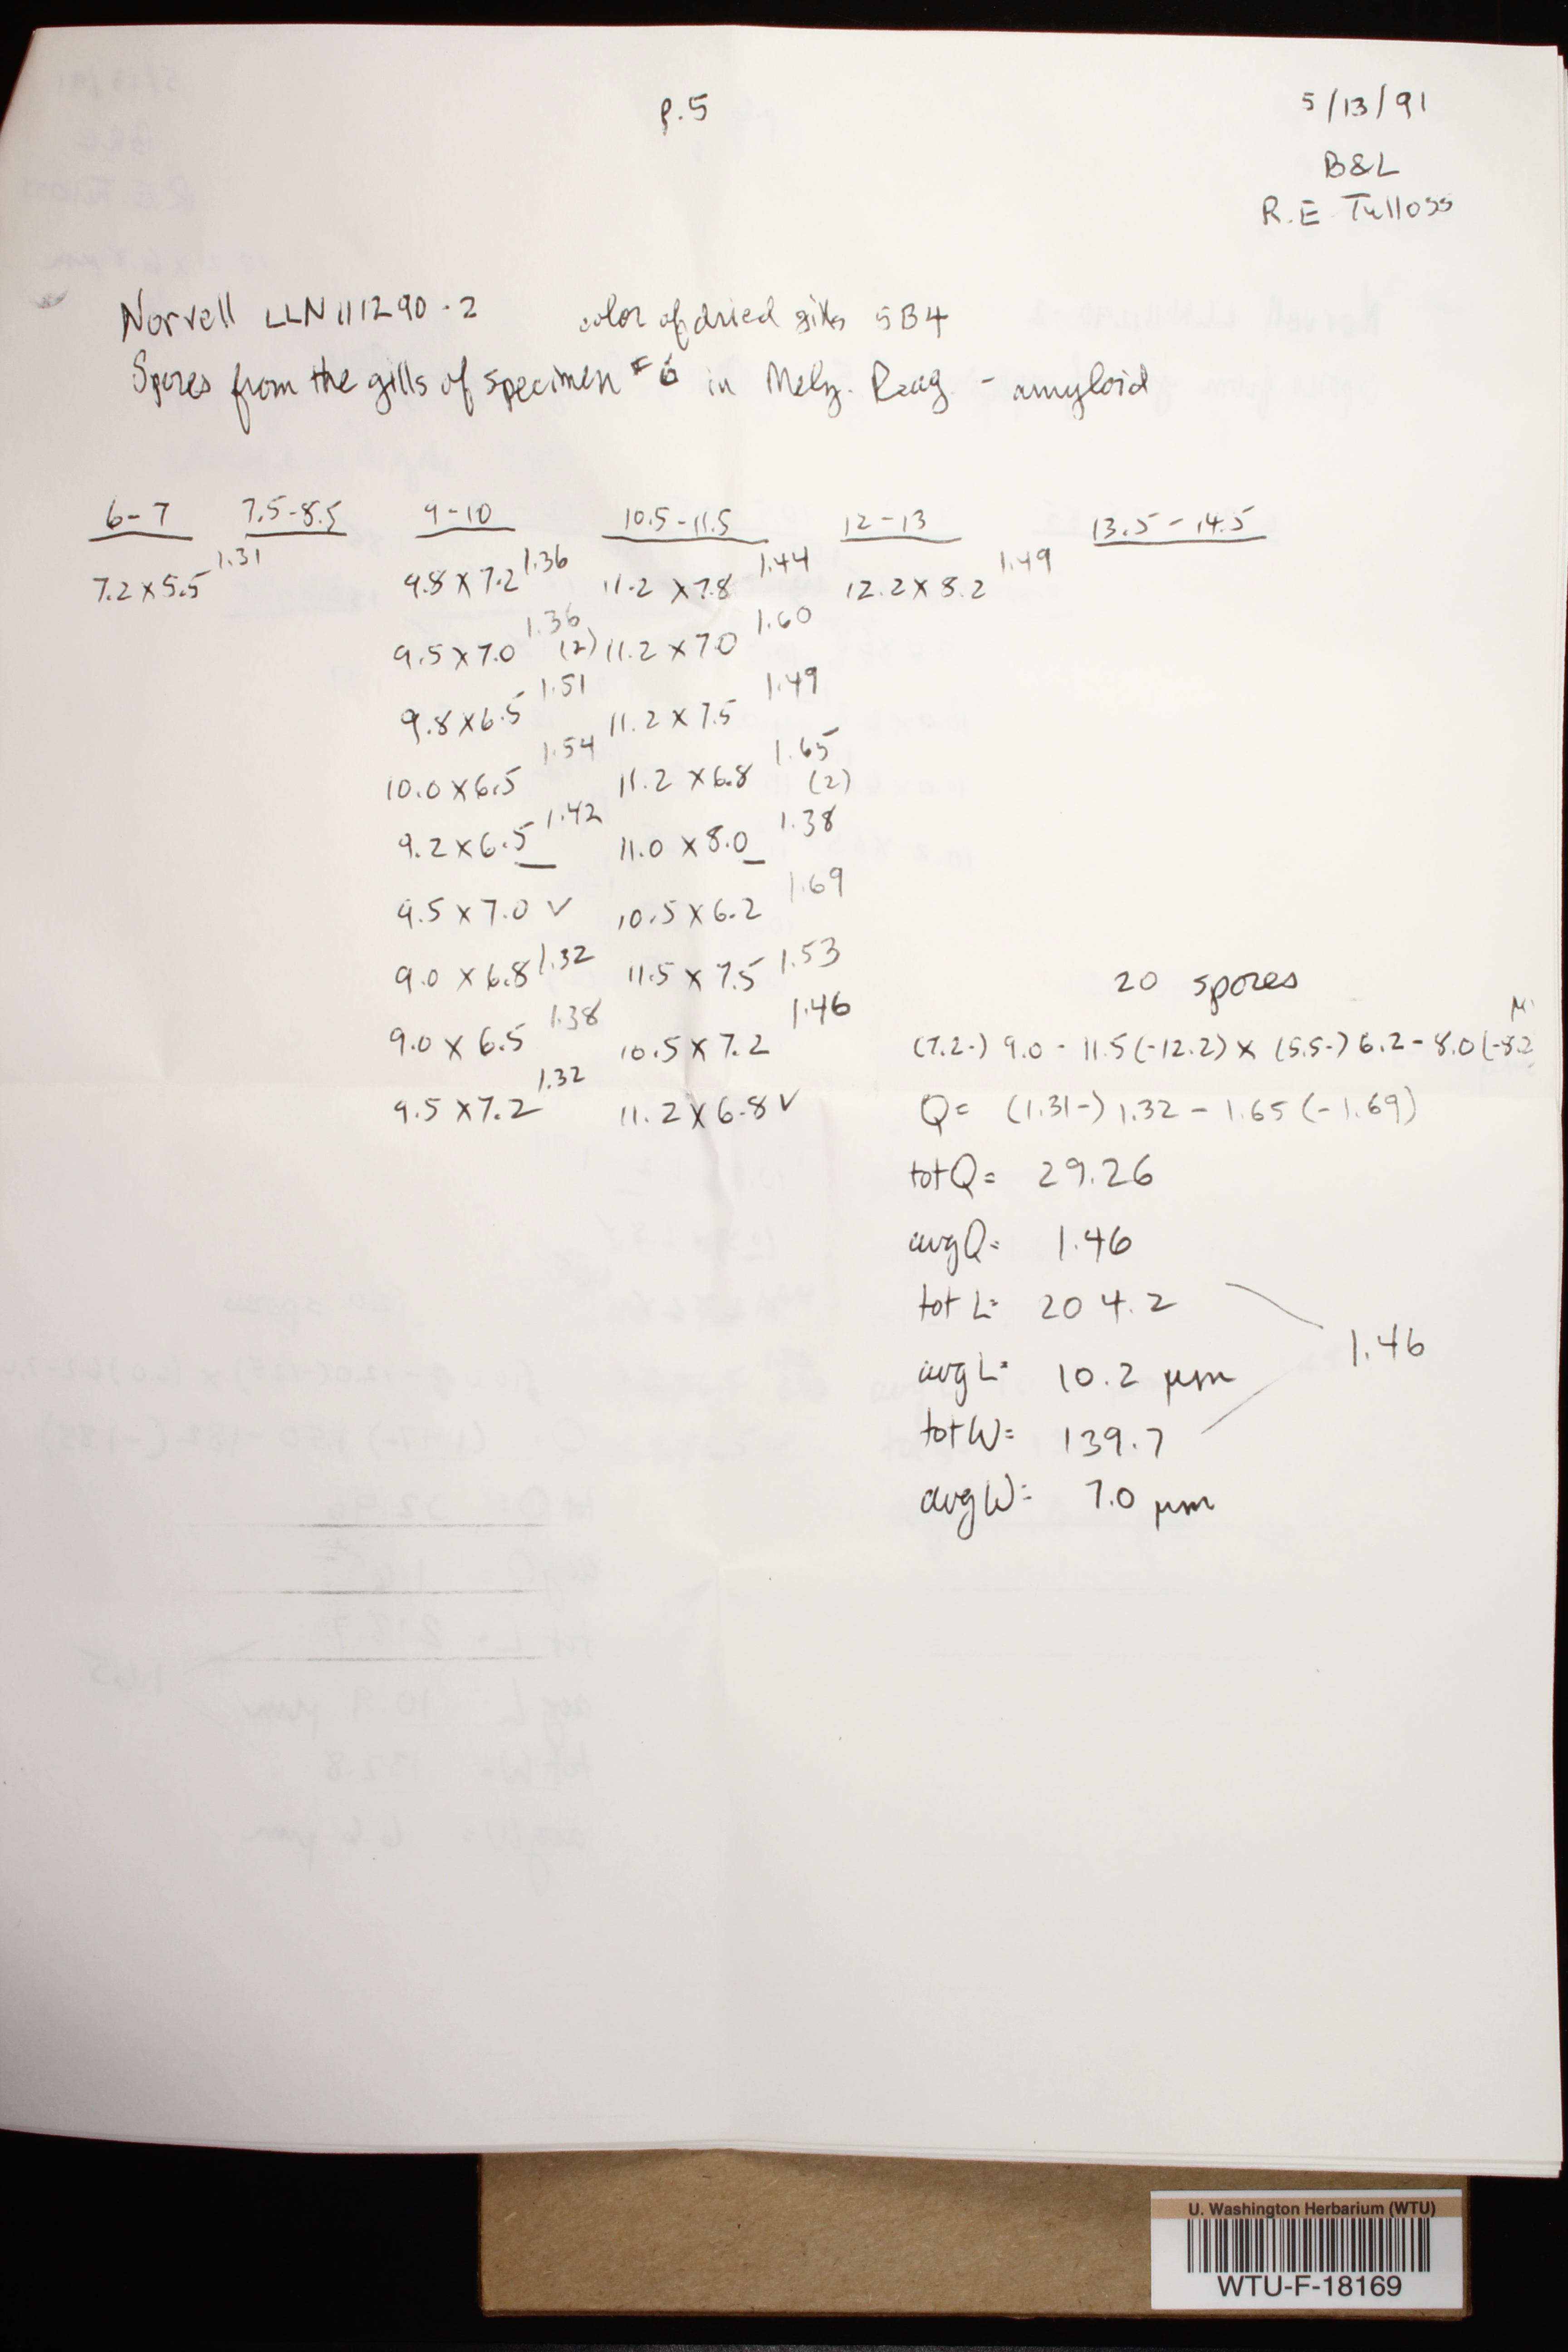 p.5
5/13/91
B&L
R.E. Tulloss
Norvell LLN111290-2 color of dried gills 5B4
Spores from the gills of specimen #6 in Melz. Reag. - amyloid
6-7 7.5-8.5 9-10 10.5-11.5 12-13 13.5-14.5
7.2 x 5.5 1.31 9.8 x 7.2 1.36 11.2 x 7.8 1.44 12.2 x 8.2 1.49
9.5 x 7.0 1.36 (2) 11.2 x 7.0 1.60
9.8 x 6.5 1.51 11.2 x 7.5 1.49
10.0 x 6.5 1.54 11.2 x 6.8 1.65 (2)
9.2 x 6.5 1.42 11.0 x 8.0 1.38
9.5 x 7.0 ✓ 10.5 x 6.2 1.69
9.0 x 6.8 1.32 11.5 x 7.5 1.53
9.0 x 6.5 1.38 10.5 x 7.2 1.46
9.5 x 7.2 1.32 11.2 x 6.8 ✓
20 spores
(7.2-) 9.0 - 11.5 (-12.2) x (5.5-) 6.2 - 8.0 (-8.2
Q = (1.31-) 1.32 - 1.65 (-1.69)
totQ = 29.26
avgQ = 1.46
tot L = 204.2
1.46
avgL = 10.2 µm
totW = 139.7
avgW = 7.0 µm
U. Washington Herbarium (WTU)
WTU-F-18169